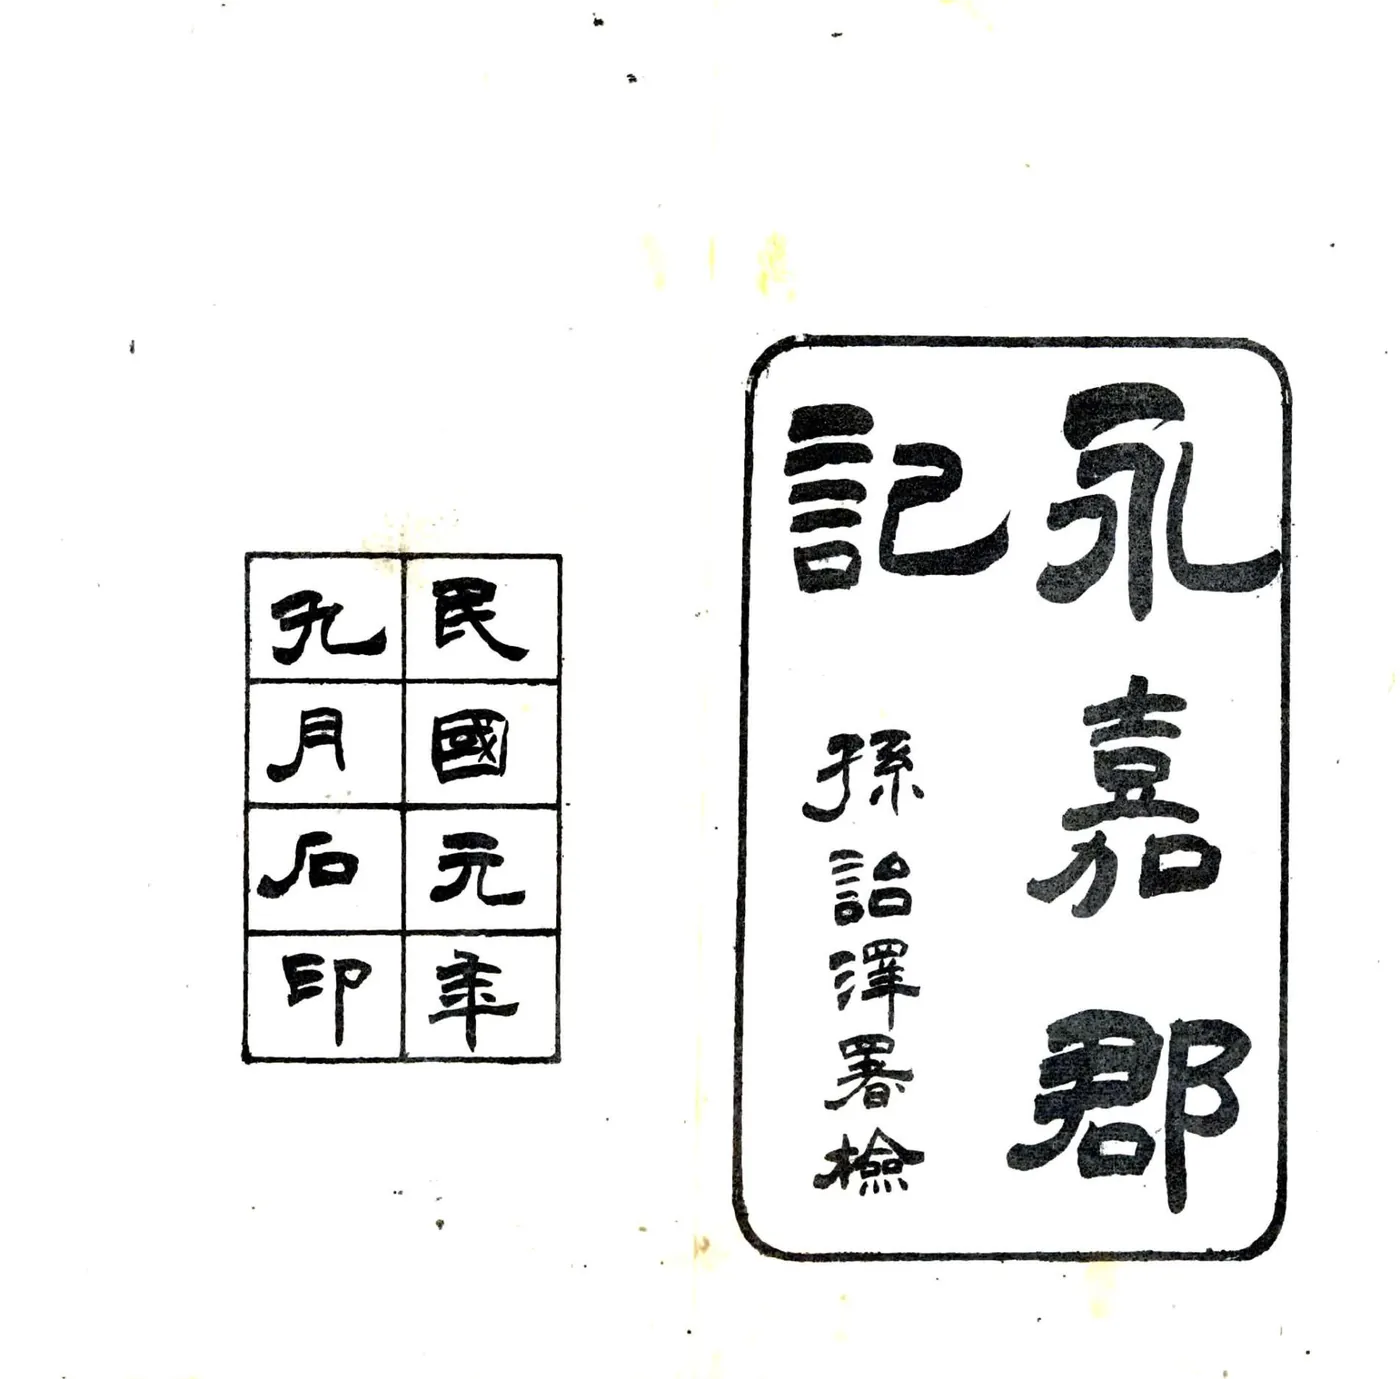 永嘉郡
記
孫詒澤署檢
民國元年
孔月石印